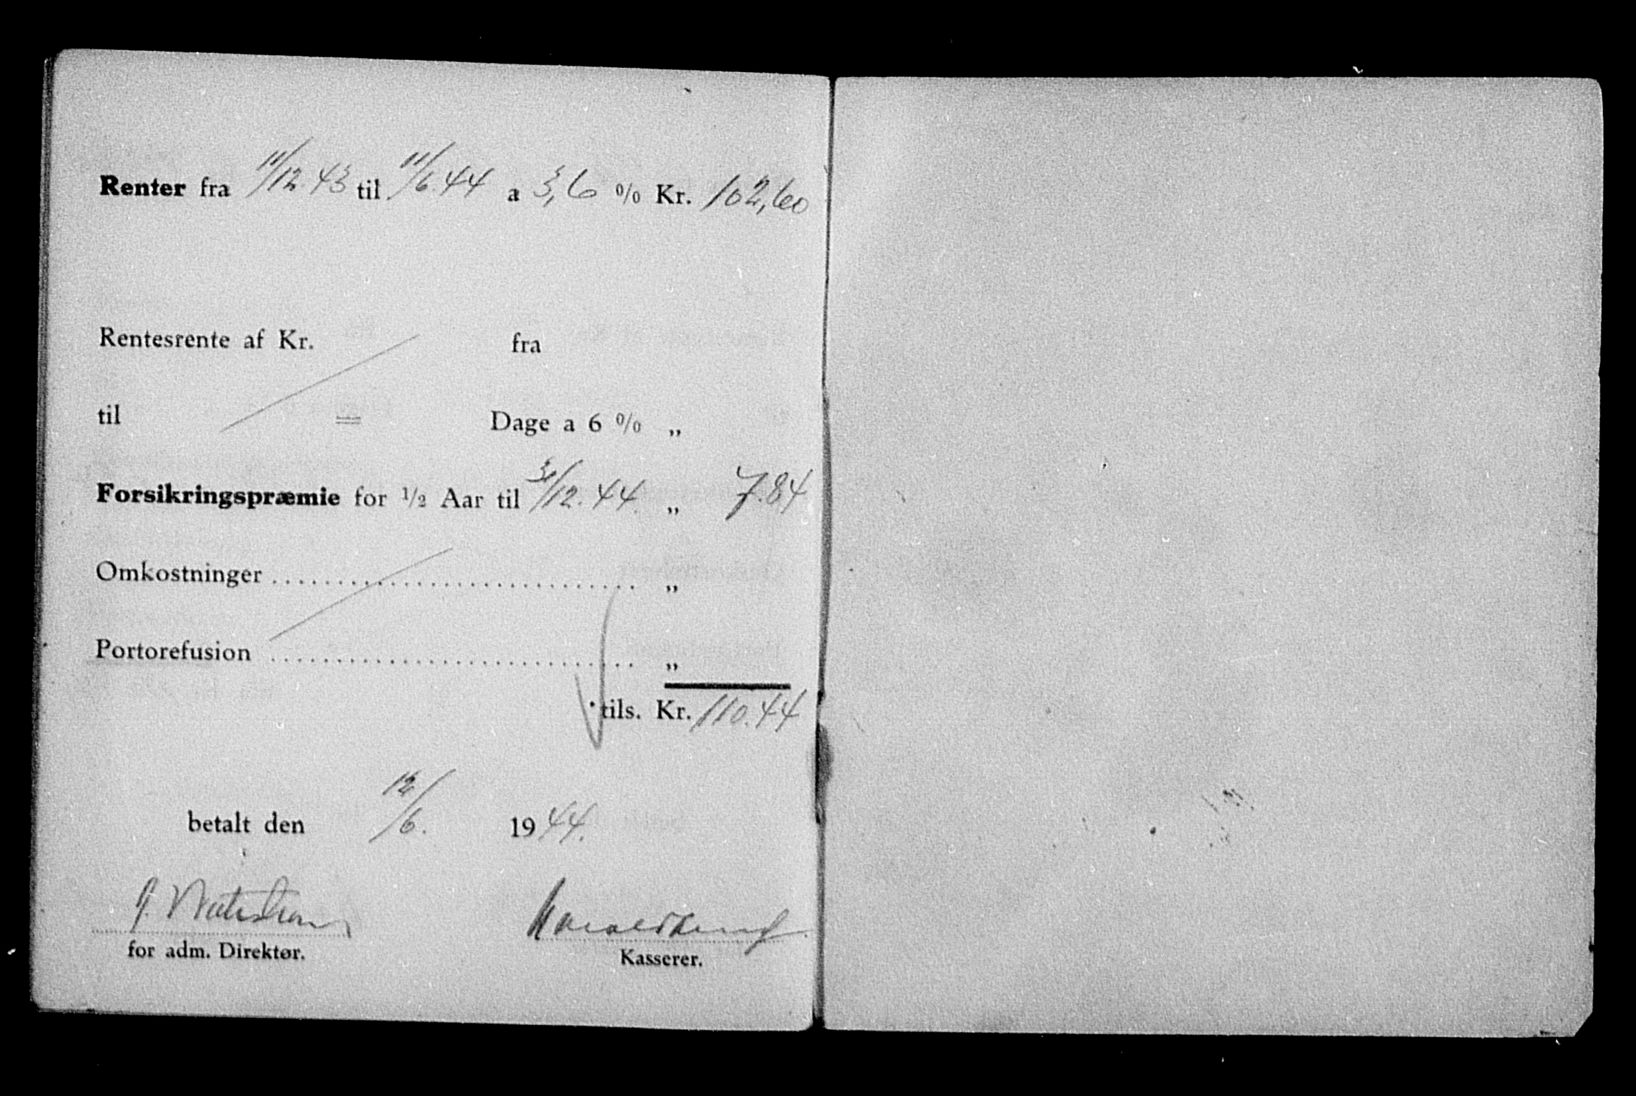 Renter fra 11/12.43 til 11/6.44 a 3,6 % Kr. 102,60
Rentesrente af Kr. fra
til = Dage a 6 % „
Forsikringspræmie for 1/2 Aar til 31/12.44. „ 7.84
Omkostninger ............................ „
Portorefusion ............................ „
tils. Kr. 110.44
betalt den 12/6. 1944.
for adm. Direktør. Kasserer.